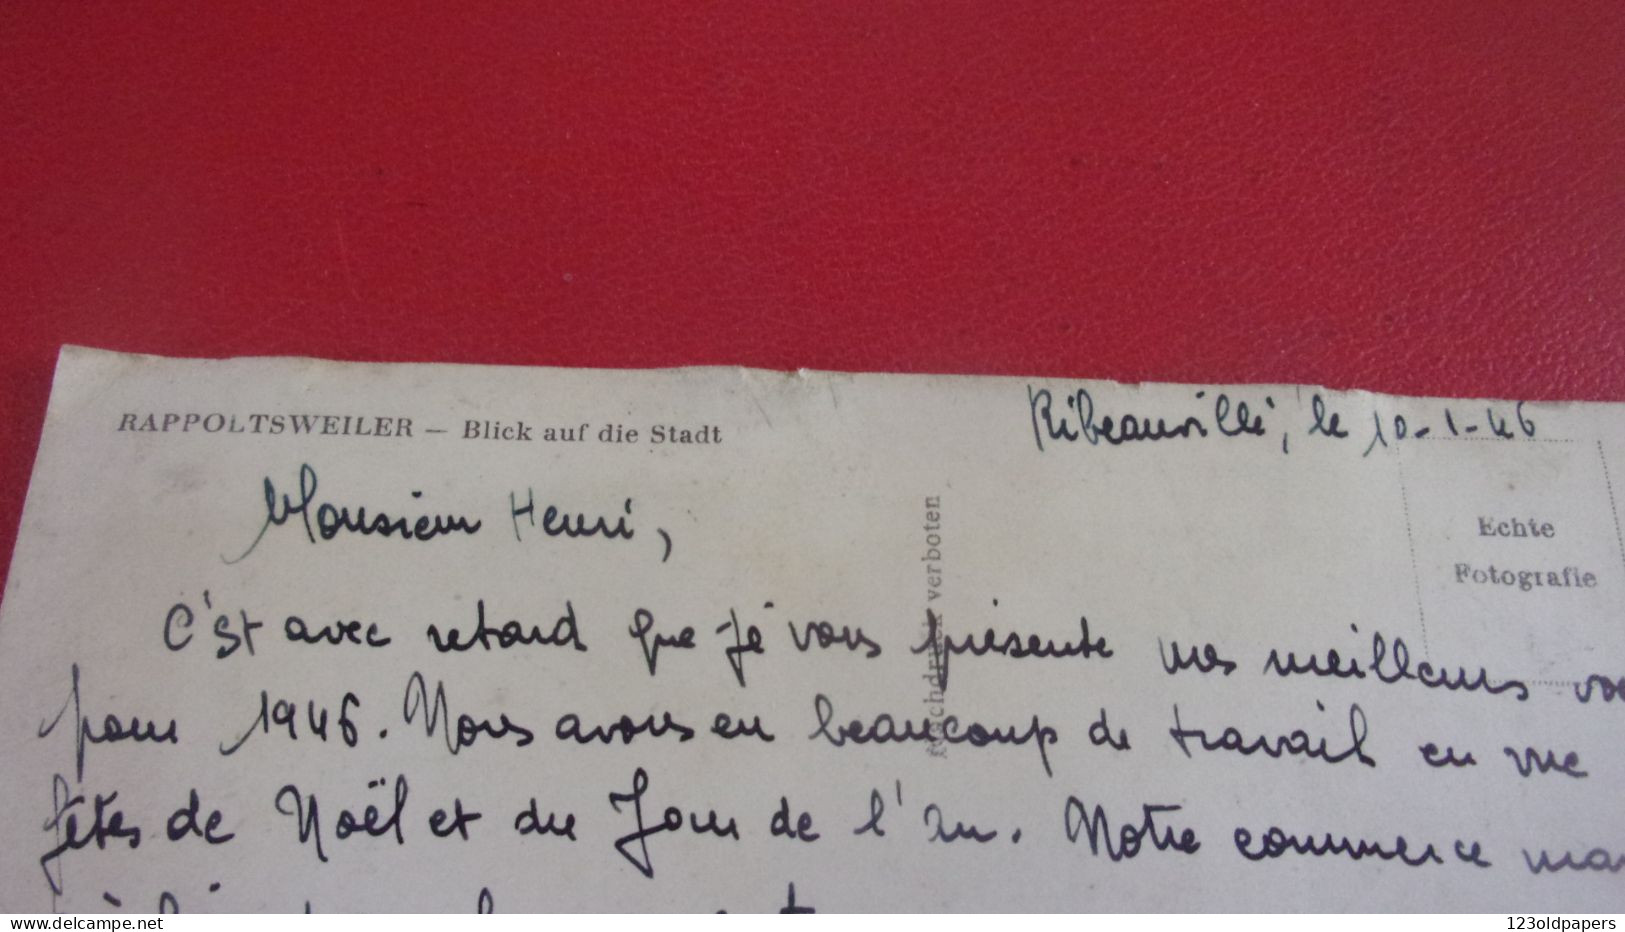 RAPPOLTSWEILER — Blick auf die Stadt
Ribeauvillé, le 10-1-46
Echte
Fotografie
Nachdruck verboten
Monsieur Henri,
C'est avec retard que je vous présente mes meilleurs
pour 1946. Nous avons eu beaucoup de travail en vue
fêtes de Noël et du Jour de l'an. Notre commerce
123oldpapers